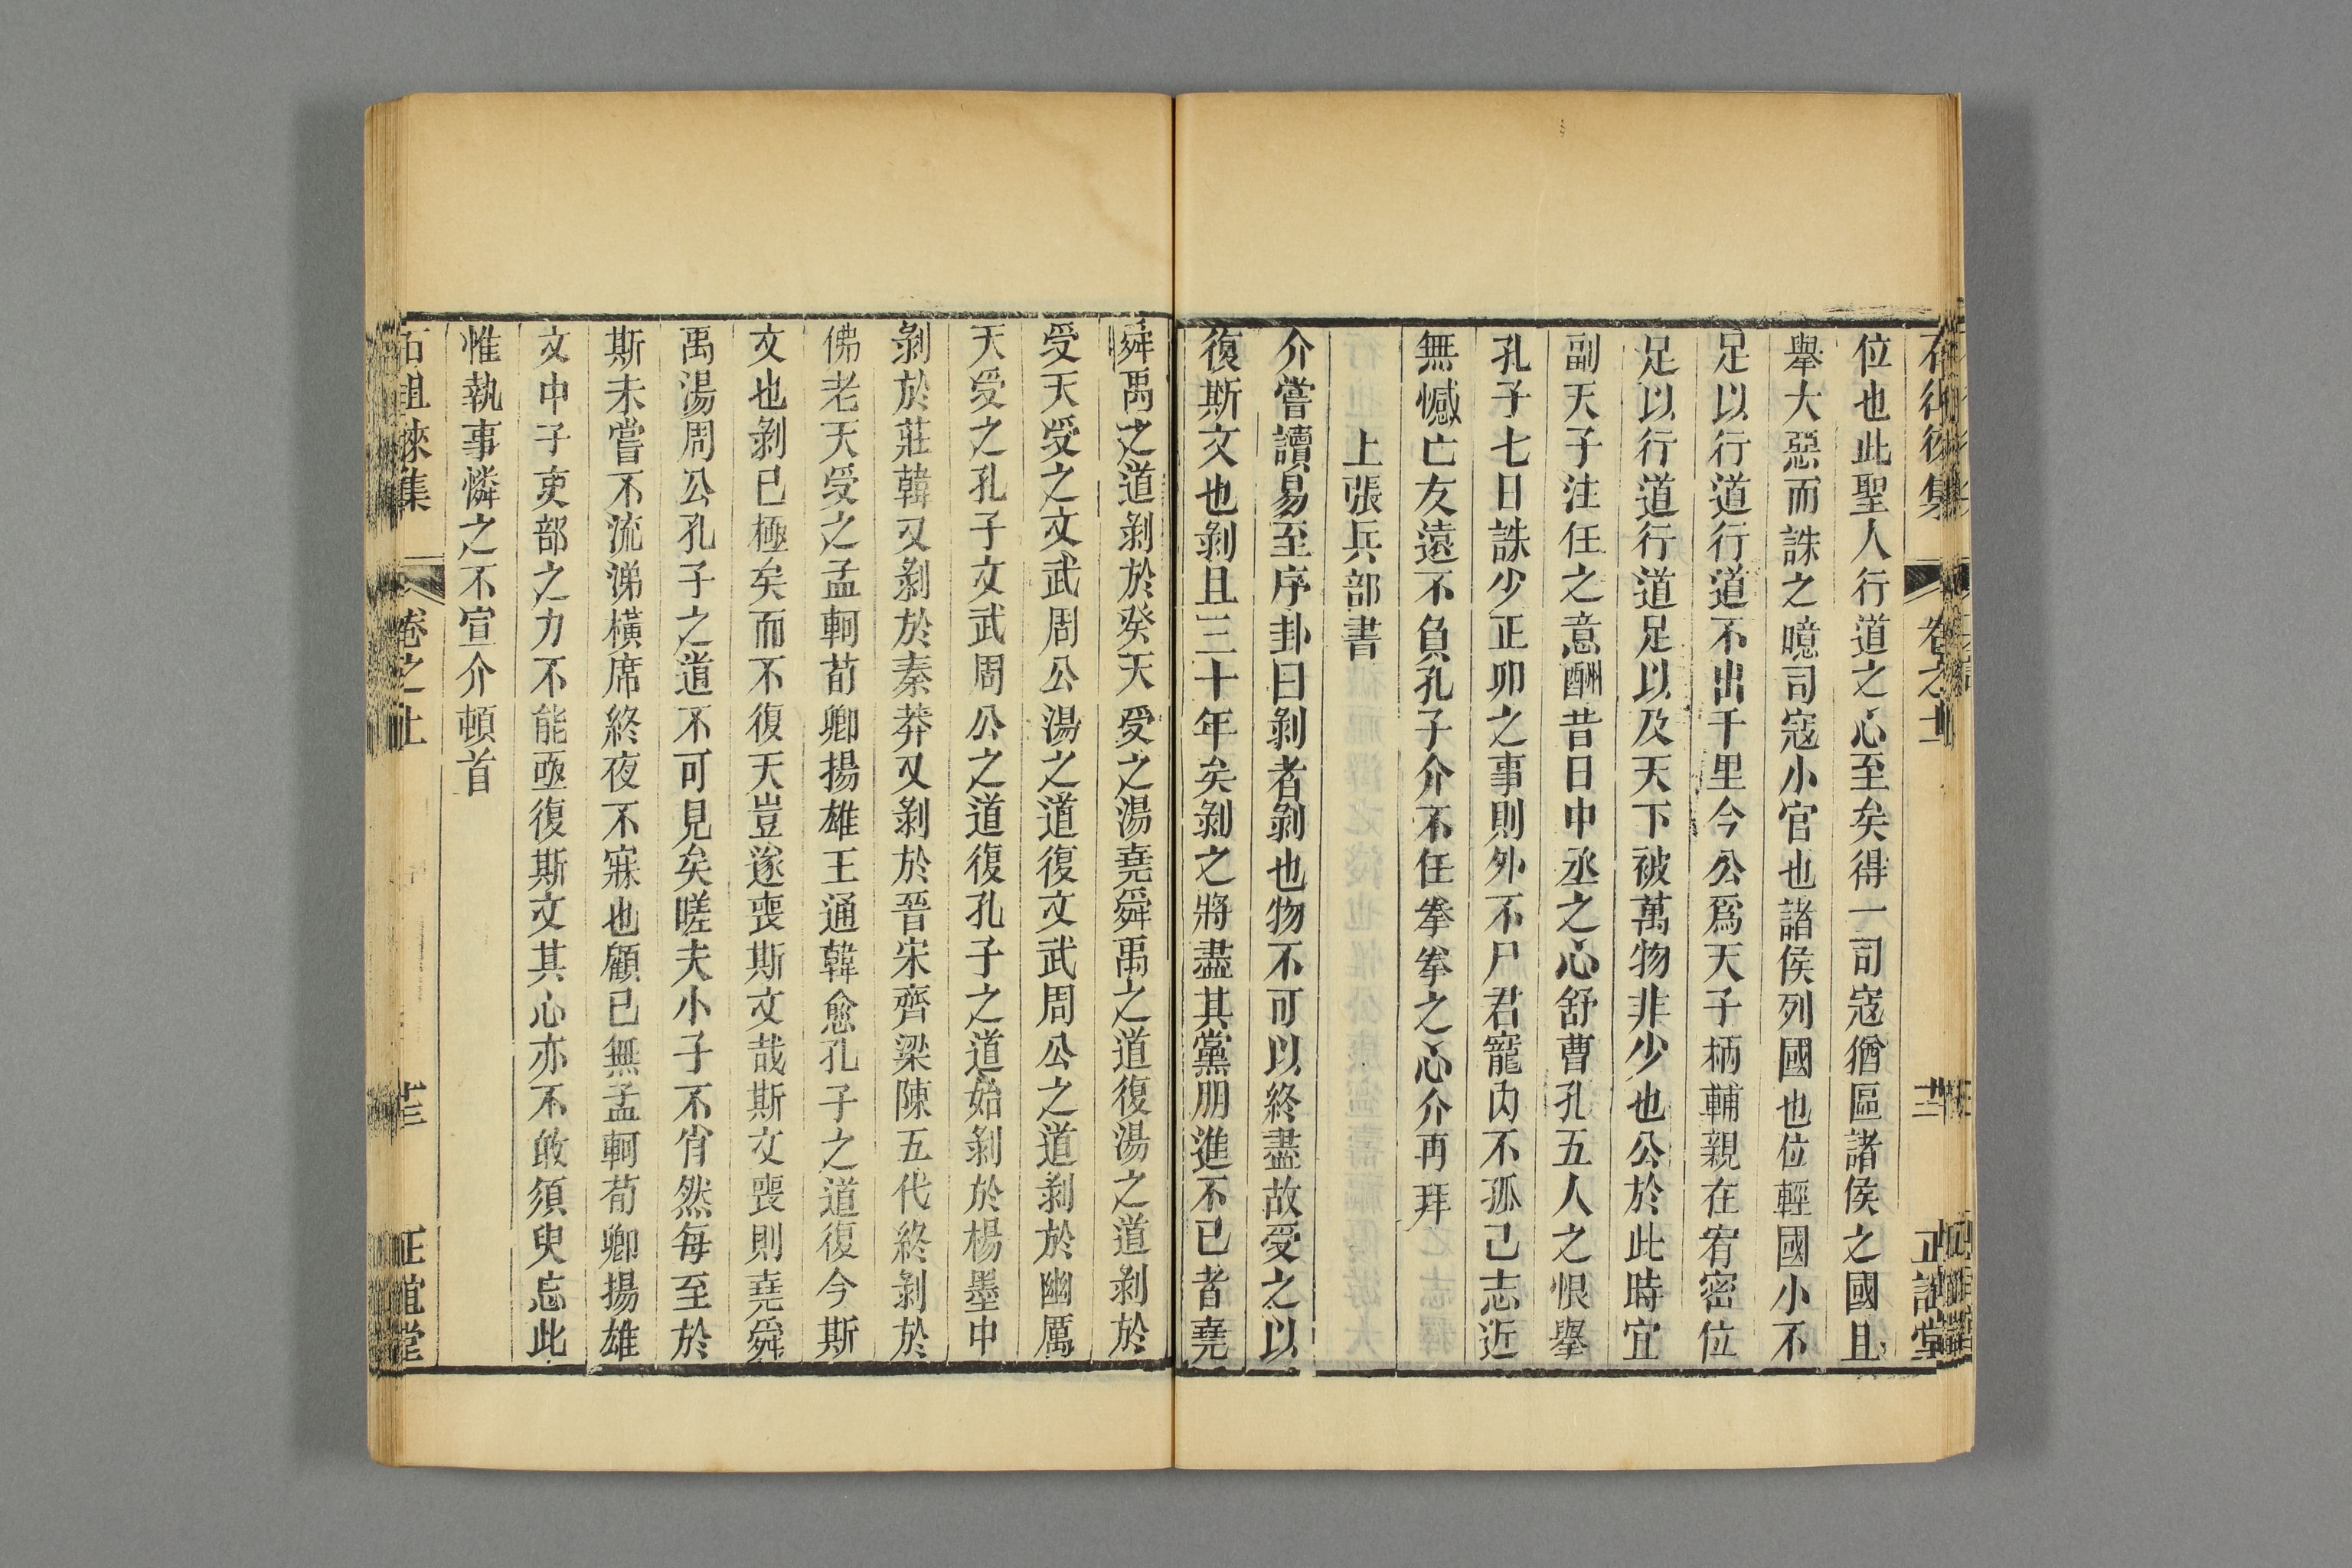 位也此聖人行道之心至矣得一司寇猶區諸侯之國且
舉大惡而誅之噫司寇小官也諸侯列國也位輕國小不
足以行道行道不出千里今公爲天子柄輔親在宥密位
足以行道行道足以及天下被萬物非少也公於此時宜
副天子注任之意酬昔日中丞之心舒曹孔五人之恨舉
孔子七日誅少正卯之事則外不尸君寵內不孤己志近
無憾亡友遠不負孔子介不任拳拳之心介再拜
上張兵部書
介嘗讀易至序卦曰剝者剝也物不可以終盡故受之以
復斯文也剝且三十年矣剝之將盡其黨朋進不已者堯
舜禹之道剝於癸天受之湯堯舜禹之道復湯之道剝於
受天受之文武周公湯之道復文武周公之道剝於幽厲
天受之孔子文武周公之道復孔子之道始剝於楊墨中
剝於莊韓又剝於秦莽又剝於晉宋齊梁陳五代終剝於
佛老天受之孟軻荀卿揚雄王通韓愈孔子之道復今斯
文也剝已極矣而不復天豈遂喪斯文哉斯文喪則堯舜
禹湯周公孔子之道不可見矣嗟夫小子不肖然每至於
斯未嘗不流涕橫席終夜不寐也顧已無孟軻荀卿揚雄
文中子吏部之力不能亟復斯文其心亦不敢須臾忘此
惟執事憐之不宣介頓首
石徂徠集 卷之上 正誼堂